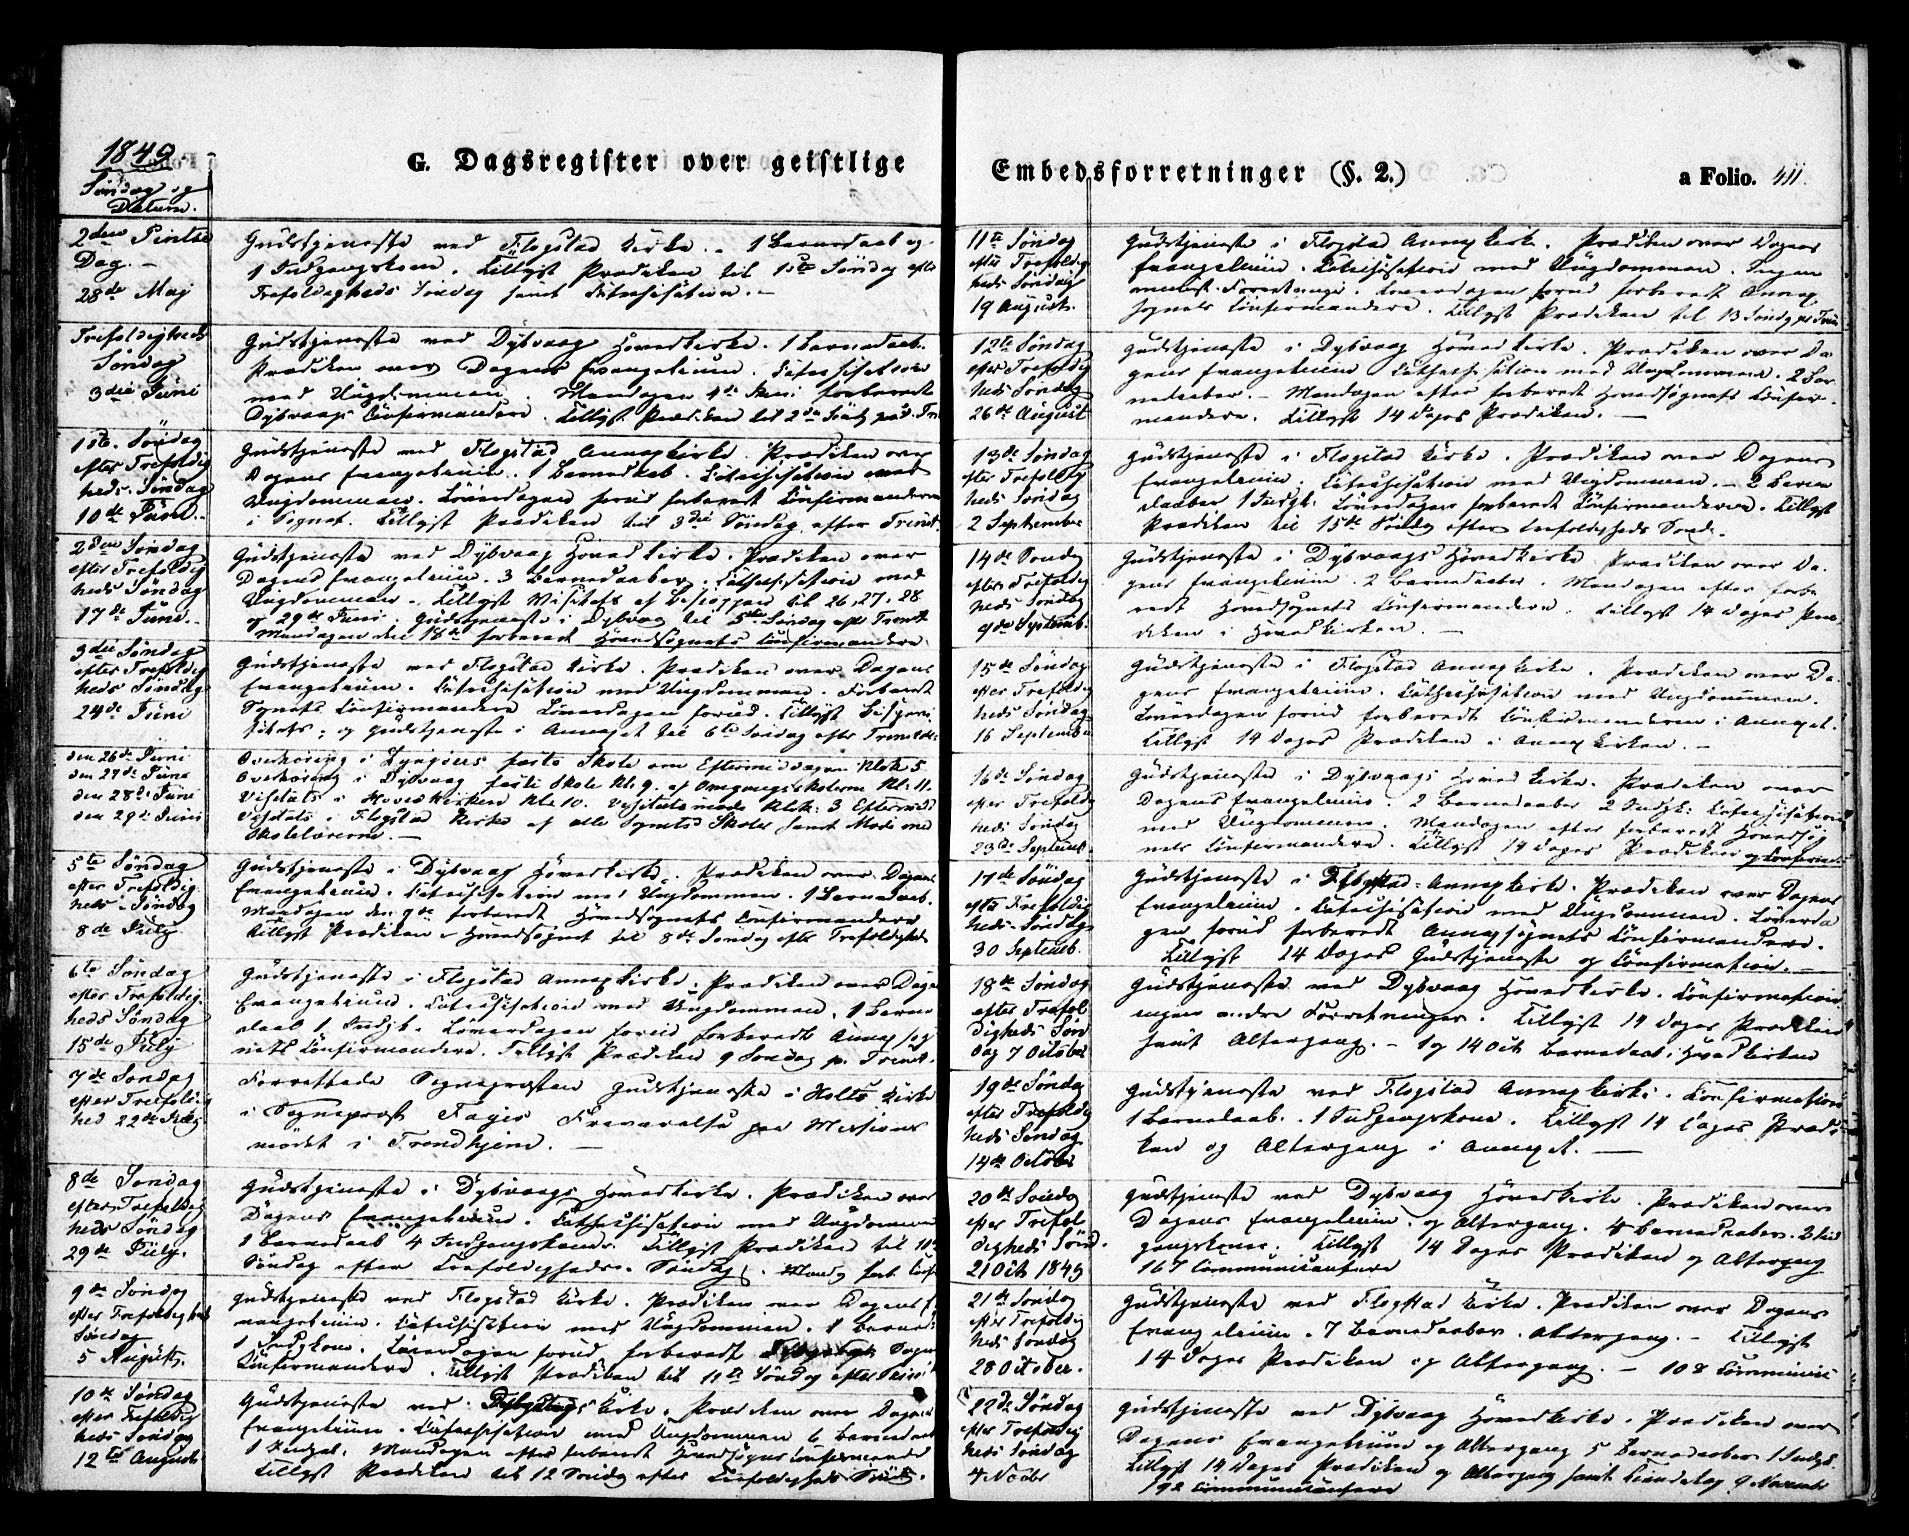 1849.
G. Dagsregister over geistlige
Søndag og
Datum.
2den Pintse
Dag. -
28de Maj
Gudstjeneste ved Flogstad Kirke. - 1 Barnedaab og
1 Indgangskone. Tillyst Prædiken til 1ste Søndag efter
Trefoldigheds Søndag samt Catechisation. -
Trefoldigheds
Søndag
3die Juni
Gudstjeneste ved Dybvaag Hovedkirke. 1 Barnedaab.
Prædiken over Dagens Evangelium. Catechisation
med Ungdommen. Mandagen 4de Juni forberedt
Dybvaags Confirmandere. Tillyst Prædiken til 2den Sönd
1ste Søndag
efter Trefoldig
heds. Søndag
10de Juni.
Gudstjeneste ved Flogstad Annexkirke. Prædiken over
Dagens Evangelium. 1 Barnedaab. Catechisation med
Ungdommen. Löverdagen forud forberedt Confirmanderne
i Sognet. Tillyst Prædiken til 3die Søndag efter Trinit.
2den Søndag
efter Trefoldig
heds Søndag
17de Juni.
Gudstjeneste ved Dybvaag Hoved Kirke. Prædiken over
Dagens Evangelium. 3 Barnedaaber. Cathechisation med
Ungdommen. Tillyst Visitats af Bispen til 26, 27, 28
og 29de Juni. Gudstjeneste i Dybvaag til 5te Søndag efter Trinit
Mandagen den 18de forberedt Hovedsognets Confirmandere.
3die Søndag
efter Trefoldig
heds Søndag
24de Juni
Gudstjeneste ved Flogstad Kirke. Prædiken over Dagens
Evangelium. Catechisation med Ungdommen. Forberedt
Sognets Confirmandere Löverdagen forud. Tillyst Bispevisi
tats, og Gudstjeneste i Annexet til 6te Søndag efter Trinit.
den 26de Juni
den 27de Juni
den 28de Juni
den 29de Juni
Overhöring i Lyngöers faste Skole om Eftermiddagen Klok 5.
Overhöring i Dybvaag faste Skole Kl. 9. af Omgangsskolerne Kl. 11.
Visitats i Hovedkirken Kl. 10. Visitatsmöde Klok. 3 Eftermid
Visitats i Flogstad Kirke af alle Sognets Skoler samt Möde med
Skolelærerne. -
5te Søndag
efter Trefoldig
heds. Søndag
8de July
Gudstjeneste i Dybvaag Hovedkirke. Prædiken over Dagens
Evangelium. Catechisation med Ungdommen. 1 Barnedaab.
Mandagen den 9de forberedt Hovedsognets Confirmandere
Tillyst Prædiken i Hovedsognet til 8de Søndag efter Trefoldigheds
6te Søndag
efter Trefoldig
heds Søndag
15de July
Gudstjeneste i Flogstad Annexkirke. Prædiken over Dagens
Evangelium. Catechisation med Ungdommen. 1 Barne
daab 1 Indgk. Löverdagen forud forberedt Annexsog
nets Confirmandere. Tillyst Prædiken 9 Søndag p. Trinit.
7de Søndag
efter Trefoldig
hed 22de July
Forrettede Sognepræsten Gudstjeneste i Holts Kirke
i Sognepræst Fayes Fraværelse paa Missions
mödet i Trondhjem. -
8de Søndag
efter Trefoldig
heds Søndag
29de July.
Gudstjeneste i Dybvaags Hovedkirke. Prædiken over
Dagens Evangelium. Cathechisation med Ungdommen
1 Barnedaab 4 Indgangskoner. Tillyst Prædiken til 10de
Søndag efter Trefoldigheds Søndag. Mandg forb. Conf
9de Søndag
efter Trefoldigheds
Søndag
5 August.
Gudstjeneste ved Flogstad Kirke. Prædiken over Dagens E
vangelium. Catechisation med Ungdommen. 1 Barned
1 Indgkone. Löverdagen forud forberedt Sognets
Confirmandere. Tillyst Prædiken til 11te Søndag efter Trinit
10de Søndag
efter Trefoldig
heds Søndag
12te August
Gudstjeneste ved Dybvaags Kirke. Prædiken over Dagens
Evangelium. Catechisation med Ungdommen 6 Barnedaab
1 Indgk. Mandagen efter forberedt Hovedsognets Confirmander
Tillyst Prædiken til 12 Søndag efter Trefoldigheds Sönd.
Embedsforretninger (§. 2.)
a Folio. 411.
11te Søndag
efter Trefoldig
heds Søndag
19 August.
Gudstjeneste i Flogstad Annexkirke. Prædiken over Dagens
Evangelium. Catechisation med Ungdommen. Ingen
Forretninger. Löverdagen forud forberedt Annex
sognets Confirmandere. Tillyst Prædiken til 13 Søndg p. Trin
12te Søndag
efter Trefoldig
heds Søndag
26de August
Gudstjeneste i Dybvaag Hovedkirke. Prædiken over Da
gens Evangelium Cathechisation med Ungdommen. 2 Bar
nedaaber. - Mandagen efter forberedt Hovedsognets Confir-
mandere. Tillyst 14 Dages Prædiken. -
13de Søndag
efter Trefoldig
heds Søndag
2 September
Gudstjeneste i Flogstad Kirke. Prædiken over Dagens
Evangelium. Catechisation med Ungdommen. - 2 Barne
daaber 1 Indgk. Löverdagen forberedt Confirmandere. Tillyst
Prædiken til 15de Søndag efter Trefoldigheds Sönd.
14de Søndag
efter Trefoldig
heds Søndag
9de Septemb.
Gudstjeneste i Dybvaags Hovedkirke Prædiken over Da-
gens Evangelium. 2 Barnedaaber. Mandagen efter forbe
redt Hovedsognets Confirmandere. Tillyst 14 Dages Præ
diken i Hovedkirken. -
15de Søndag
efter Trefoldig
heds Søndag
16 September
Gudstjeneste i Flogstad Annexkirke. Prædiken over Da-
gens Evangelium. Cathechisation med Ungdommen.
Löverdagen forud forberedt Confirmanderne i Annexet.
Tillyst 14 Dages Prædiken i Annexkirken. -
16de Søndag
efter Trefoldig
heds Søndag
23de Septemb.
Gudstjeneste i Dybvaags Hovedkirke. Prædiken over
Dagens Evangelium. 2 Barnedaaber 2 Indgk. Catechisation
med Ungdommen. Mandagen efter forberedt Hovedsog
nets Confirmandere. Tillyst 14 Dages Prædiken og Confirmat
17de Søndag
efter Trefoldig
heds Søndag
30 Septemb.
Gudstjeneste i Flogstad Annexkirke. Prædiken over Dagens
Evangelium. Catechisation med Ungdommen. Löverda
gen forud forberedt Annexsognets Confirmandere.
Tillyst 14 Dages Gudstjeneste og Confirmation. -
18de Søndag
efter Trefol
digheds Søn
dag 7 October
Gudstjeneste ved Dybvaag Hovedkirke. Confirmation
ingen andre Forretninger. Tillyst 14 Dages Prædiken
samt Altergang. - Og 14 Oct Barnedaab i Hovedkirken
19de Søndag
efter Trefoldig
heds Søndag
14de October
Gudstjeneste ved Flogstad Annexkirke. Confirmation
1 Barnedaab. 1 Indgangskone. Tillyst 14 Dages Prædi
ken og Altergang i Annexet. -
20de Søndag
efter Trefol
digheds Sønd.
21 Oct 1849
Gudstjeneste ved Dybvaag Hovedkirke. Prædiken over
Dagens Evangelium. og Altergang. 4 Barnedaaber. 2 Ind
gangskoner. Tillyst 14 Dages Prædiken og Altergang
167 Communicantere
21de Søndag
efter Trefoldig
heds Søndag
28 October.
Gudstjeneste ved Flogstad Kirke. Prædiken over Dagens
Evangelium. 7 Barnedaaber. Altergang. - Tillyst
14 Dages Prædiken og Altergang. - 108 Communic
22de Søndag
efter Trefoldig
heds Søndag
4 Novbr
Gudstjeneste ved Dybvaag Hovedkirke. Prædiken over
Dagens Evangelium og Altergang 5 Barnedaaber 1 Indgk.
Tillyst 14 Dages Prædiken og Altergang samt Tirsdag 9 Novemb
192 Communicantere